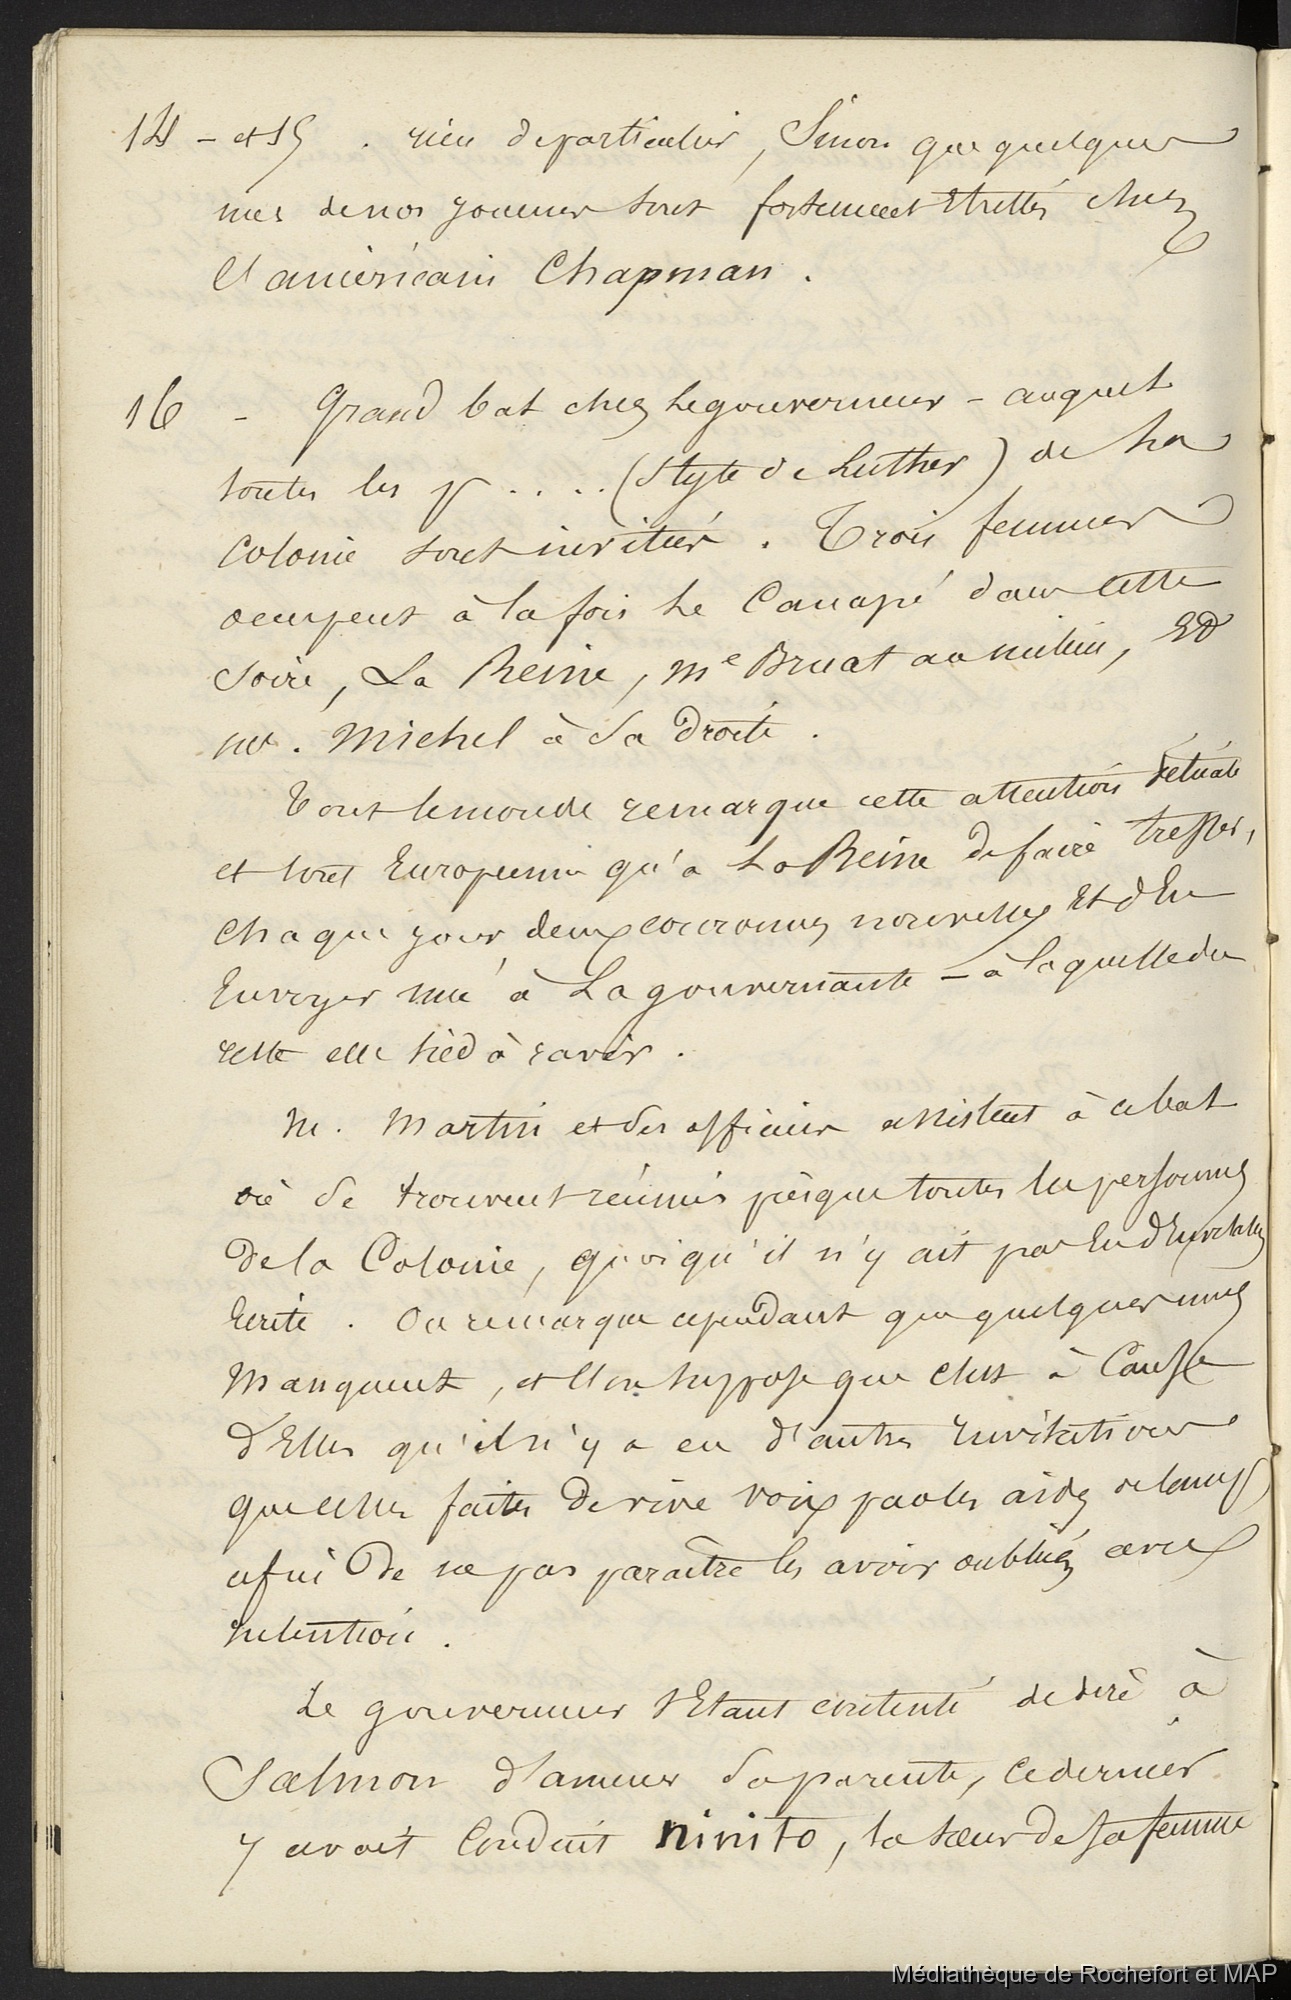 14 - et 15 . rien de particulier, Sinon que quelques
unes de nos jeunes sont fortement chez
l'américain Chapman .
16 - Grand bal chez Le gouverneur - auquel
toutes les p . . . . (Style de Luther) de La
Colonie sont invitées . Trois femmes
occupent à la fois Le Canapé dans cette
Soirée, La Reine, Me Bruat au milieu, Et
Me. Michel à Sa Droite .
Tout le monde remarque cette attention
et tout Européenne qu'a La Reine De faire tresser,
chaque jour, deux couronnes nouvelles Et d'En
Envoyer une à La gouvernante - à laquelle du
reste elle sied à ravir .
M. Martin et des officiers assistent à ce bal
où Se trouvent réunies presque toutes les personnes
De la Colonie, quoiqu'il n'y ait pas Eu
Ecrite . On remarque cependant que quelques unes
Manquent, et l'on suppose que c'est à Cause
D'Elles qu'il n'y a eu d'autres Invitations
que celles faites De vive voix par les aides de camp
afin De ne pas paraître les avoir oubliées avec
Intention .
Le gouverneur s'Etant contenté de dire à
Salmon d'amener Sa parente, ce dernier
y avait Conduit ninito, la soeur De Sa femme
Médiathèque de Rochefort et MAP